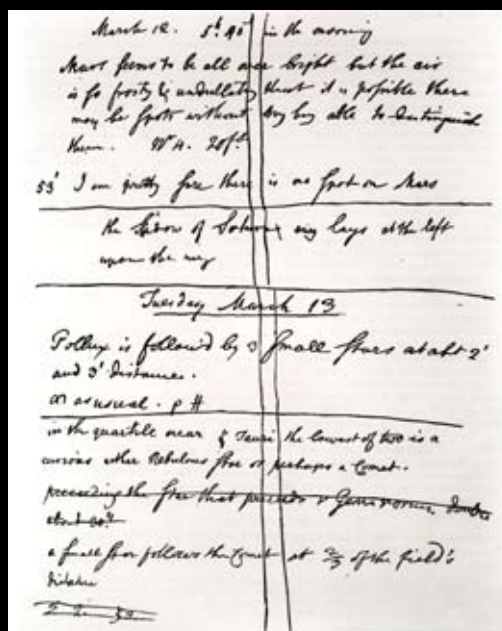 March 12. 5h 45' in the morning
Mars seems to be all over bright but the air
is so frosty & undulating that it is possible there
may be spots without my being able to distinguish
them. 20 f
53' I am pretty sure there is no spot on Mars
the Shadow of Saturns ring lays at the left
upon the ring
Tuesday March 13
Pollux is followed by 3 small stars at abt 2'
and 3' distances.
as usual. p #
in the quartile near ζ Tauri the lowest of two is a
curious either Nebulous star or perhaps a Comet.
preceeding the star that preceeds Geminorum double
about
a small star follows the Comet at 2/3 of the field's
distance